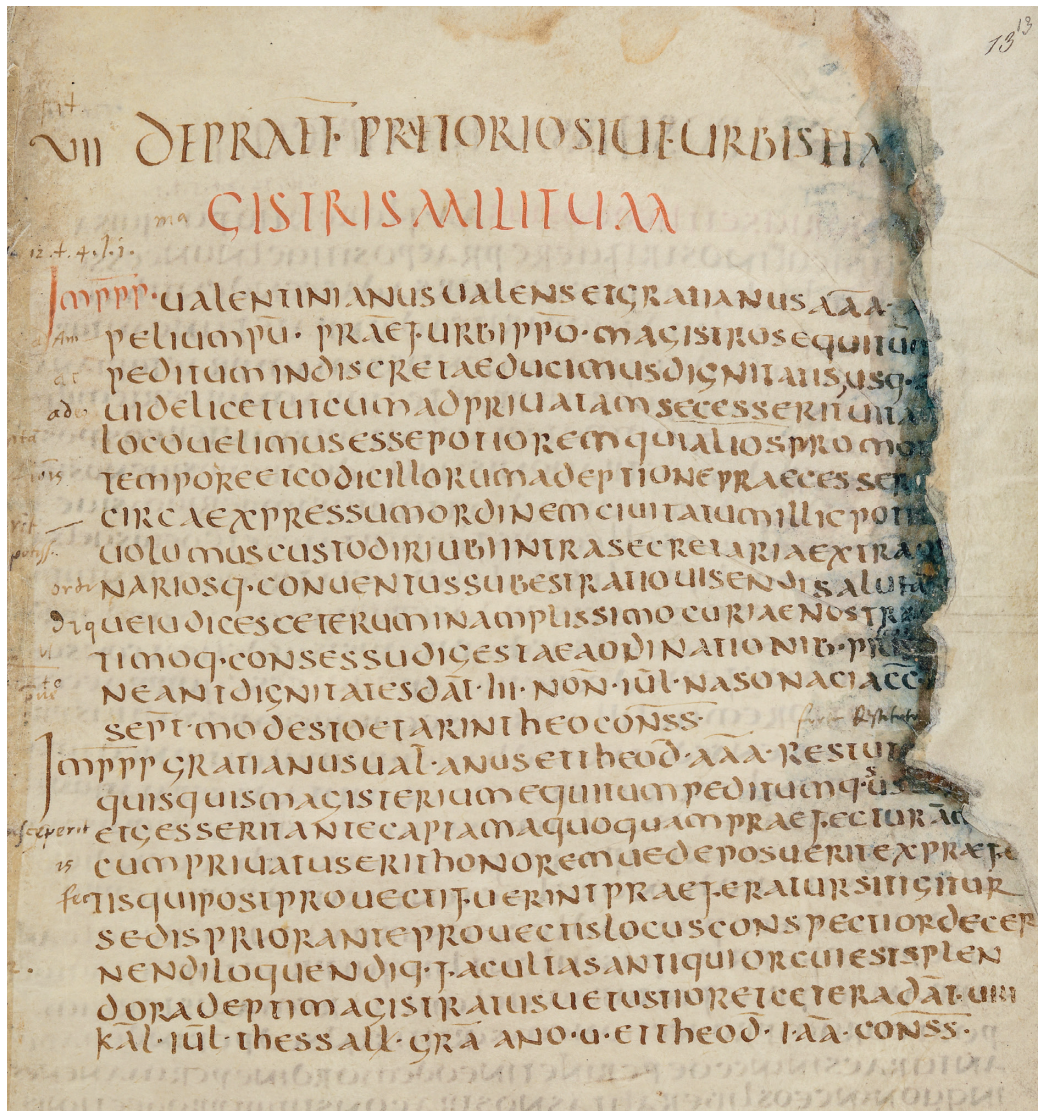 13 13
tit.
VII DE PRAEF· PRAETORIO SIUE URBIS ET MA
ma GISTRIS MILITUM
12. t. 4. l. 1.
IMPPP· UALENTINIANUS UALENS ET GRATIANUS AAA·
Am PELIUM PU· PRAEF· URB· IPPO· MAGISTROS EQUITUM
PEDITUM INDISCRETAE DUCIMUS DIGNITATIS USQ·
adeo UIDELICET UT CUM AD PRIUATAM SECESSERIT UITA
LOCO UELIMUS ESSE POTIOREM QUI ALIOS PROMO
TEMPORE ET CODICILLORUM ADEPTIONE PRAECESSER
CIRCA EXPRESSUM ORDINEM CIUITATUM ILLIC POTI
UOLUMUS CUSTODIRI UBI INTRA SECRETARIA EXTRA
ordi NARIOSQ· CONUENTUS SUBEST RATIO UISENDI SALUTA
diq UE IUDICES CETERUM IN AMPLISSIMO CURIAE NOSTRAE
TIMOQ· CONSESSU DIGESTAE A ORDINATIONIB· PRIS
NEANT DIGNITATES DAT· III· NON· IUL· NASONACI ACC
SEPT· MODESTO ET ARINTHEO CONSS·
IMPPP GRATIANUS UAL·ANUS ET THEOD· AAA· RESTUT
QUISQUIS MAGISTERIUM EQUITUM PEDITUMQ· US
sceperit ET GESSERIT ANTE CAPTAM A QUOQUAM PRAEFECTURAM
is CUM PRIUATUS ERIT HONOREMUE DEPOSUERIT EX PRAEFE
fec TIS QUI POST PROUECTI FUERINT PRAEFERATUR SIT IGITUR
SEDIS PRIOR ANTE PROUECTIS LOCUS CONSPECTIOR DECER
NENDI LOQUENDIQ· FACULTAS ANTIQUIOR CUI EST SPLEN
DOR ADEPTI MAGISTRATUS UETUSTIOR ET CETERA DAT· UIII
KAL· IUL· THESSALL· GRA ANO· U· ET THEOD· I· AA· CONSS·